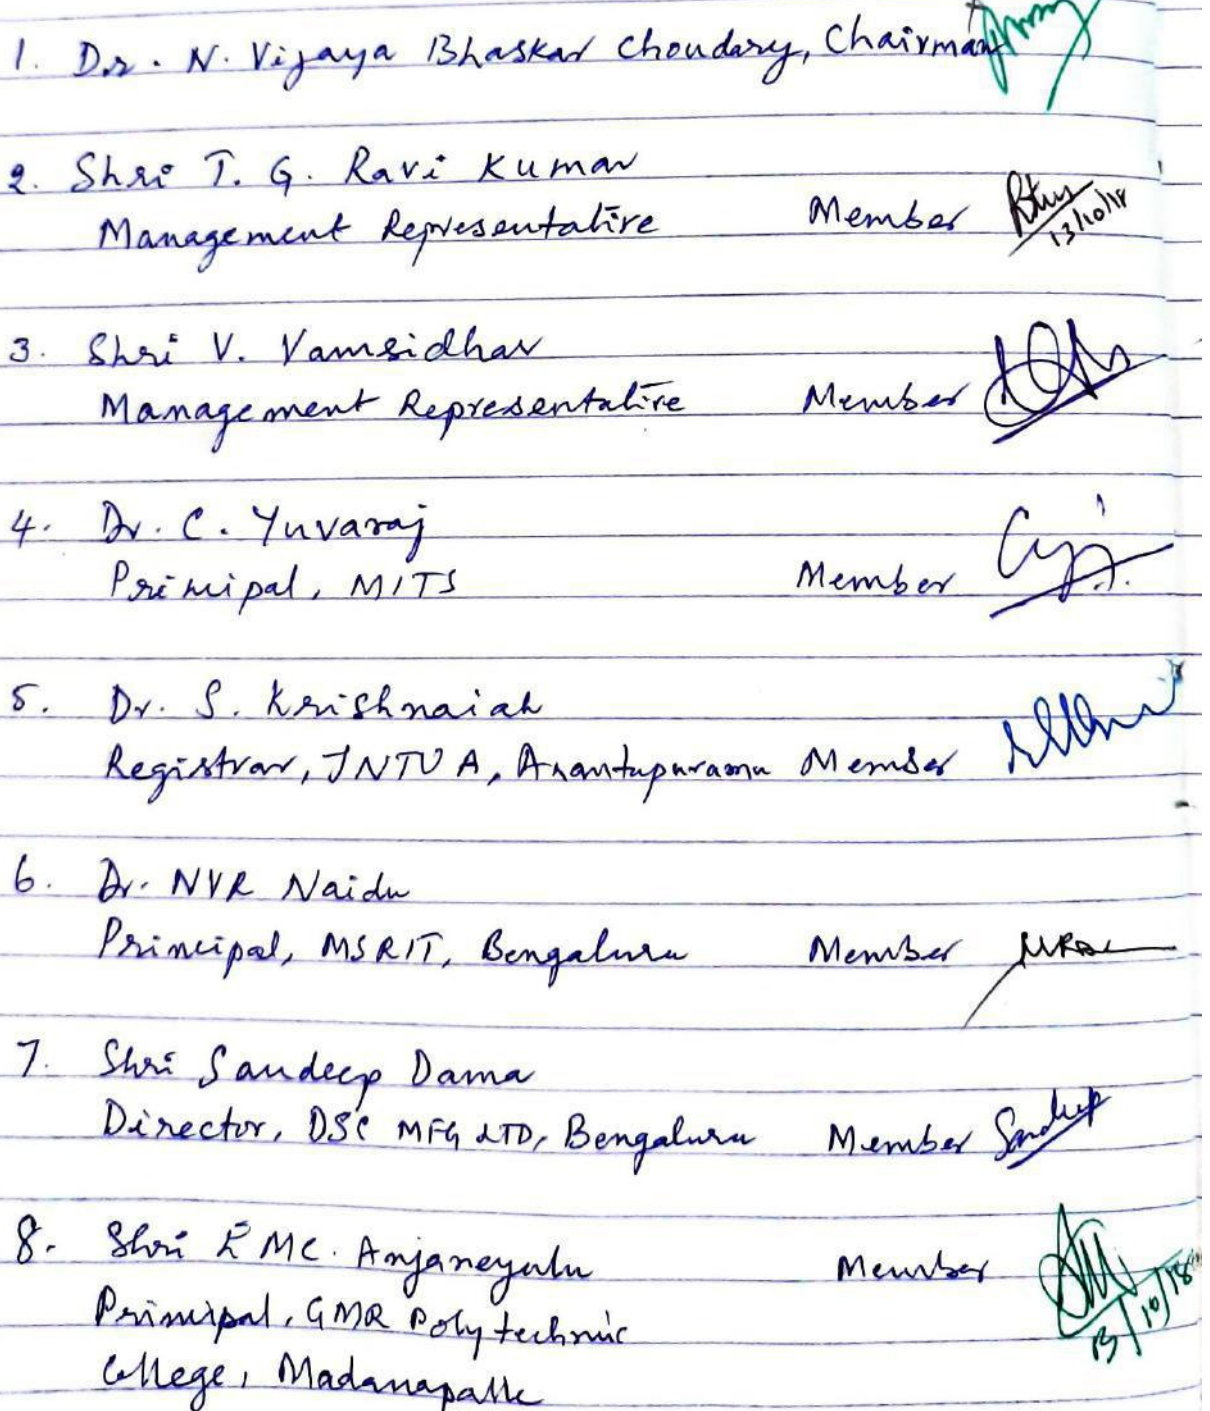 1. Dr. N. Vijaya Bhaskar Choudary, Chairman
2. Shri T. G. Ravi Kumar
Management Representative Member
13/10/18
3. Shri V. Vamsidhar
Management Representative Member
4. Dr. C. Yuvaraj
Principal, MITS Member
5. Dr. S. Krishnaiah
Registrar, JNTUA, Anantapuramu Member
6. Dr. NVR Naidu
Principal, MSRIT, Bengaluru Member
7. Shri Sandeep Dama
Director, DSC MFG LTD, Bengaluru Member Sandeep
8. Shri MC. Anjaneyulu Member
Principal, GMR Polytechnic 13/10/18
College, Madanapalle